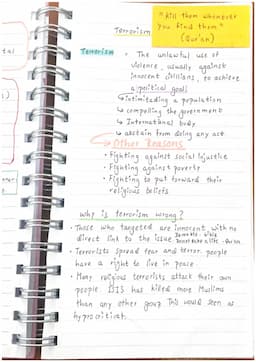 Terrorism
"Kill them whenever
you find them"
(Qur'an)
Terrorism
• The unlawful use of
violence, usually against
innocent civilians, to achieve
a political goals
intimidating a population
compelling the government
International body
abstain from doing any act
Other Reasons
• Fighting against social injustice
• Fighting against poverty
• Fighting to put forward their
religious beliefs
Why is terrorism wrong?
• Those who targeted are innocent with no
direct link to the issue
take a life - Quran
• Terrorists spread fear and terror. people
have a right to live in peace
• Many religious terrorists attack their own
people. ISIS has killed more Muslims
than any other group. This would seen as
hypocritical.